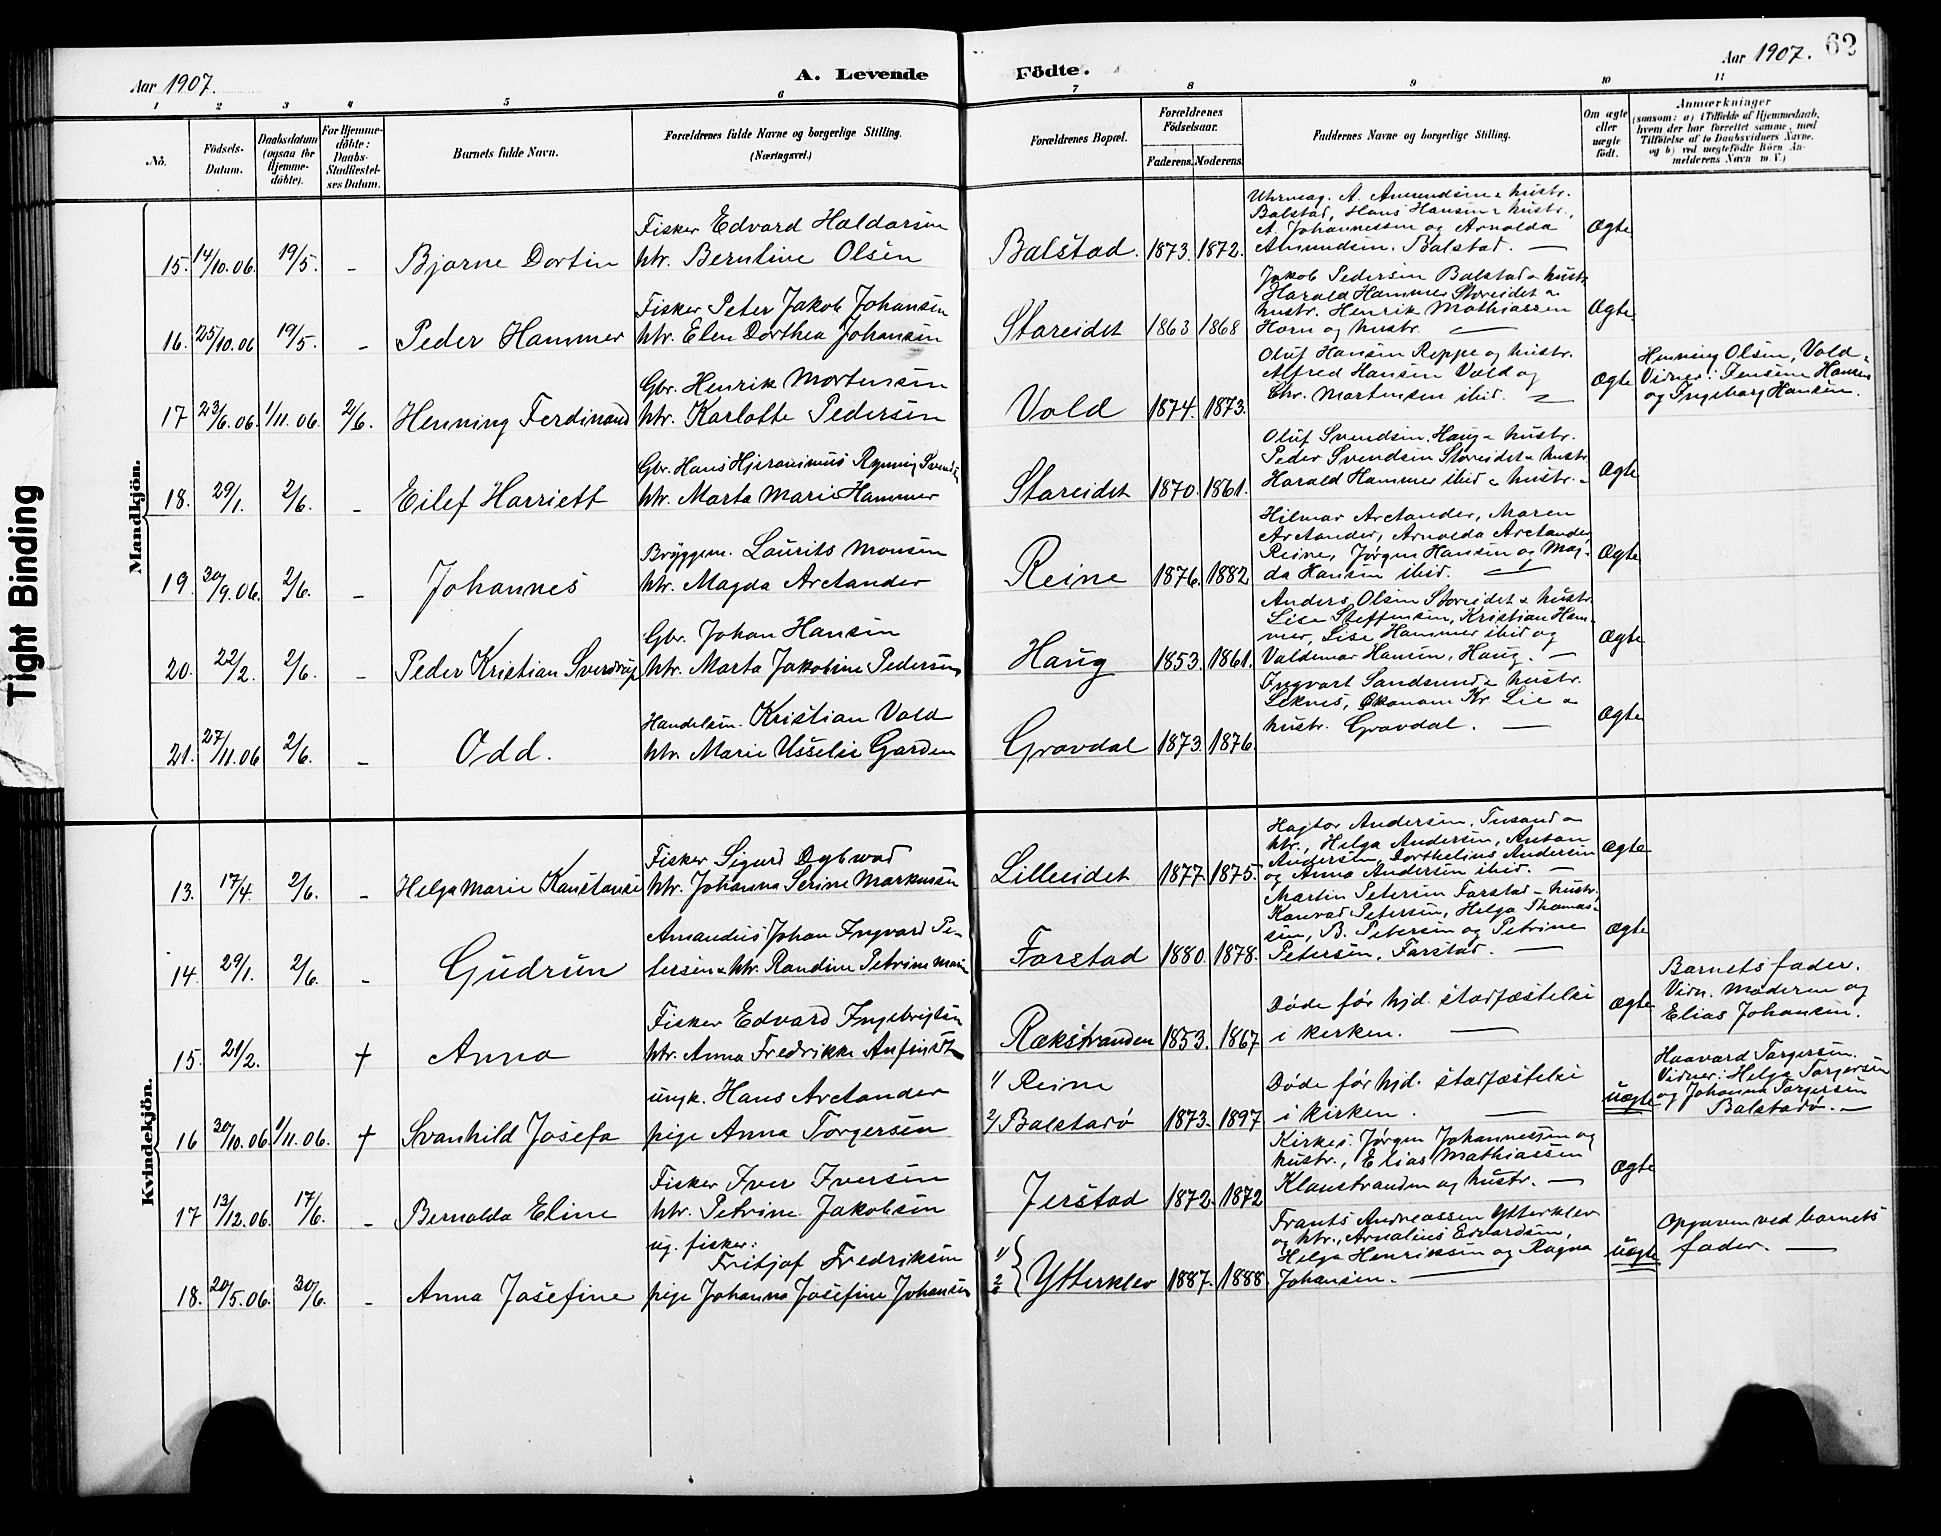 Aar 1907.
A. Levende
Födte.
Aar 1907.
62
1 2 3 4 5 6 7 8 9 10 11
No.
Födsels-
Datum.
Daabsdatum
(ogsaa for
Hjemme-
döbte).
For Hjemme-
döbte:
Daabs-
Stadfæstel-
ses Datum.
Barnets fulde Navn.
Forældrenes fulde Navne og borgerlige Stilling.
(Næringsvei.)
Forældrenes Bopæl.
Forældrenes
Födselsaar.
Faderens. Moderens.
Faddernes Navne og borgerlige Stilling.
Om ægte
eller
uægte
födt.
Anmærkninger
(saasom: a) i Tilfælde af Hjemmedaab,
hvem der har forrettet samme, med
Tilföielse af to Daabsvidners Navne,
og b) ved uægtefödte Börn An-
melderens Navn m. V.)
Tight Binding
Mandkjön.
15. 14/10.06. 19/5. -
Bjarne Dortin
Fisker Edvard Haldorsen
htr. Berntine Olsen
Balstad. 1873. 1872.
A. Amundsen & hustr.
Balstad, Hans Hansen & hustr.,
A. Johannessen og Arnolda
Amundsen, Balstad. —
Ægte
16. 25/10.06 19/5. -
Peder Hammer
Fisker Peter Jakob Johansen
htr. Elen Dorthea Johansen
Storeidet 1863 1868
Jakob Pedersen Balstad & hustr.
Harald Hammer Storeidet &
hustr. Henrik Mathiassen
Horn og hustr. —
Ægte
17 23/6.06. 1/11.06 2/6.
Henning Ferdinand
Gbr. Henrik Mortensen
htr. Karlotte Pedersen
Vold 1874. 1873.
Oluf Hansen Reppe og hustr.
Alfred Hansen Vold og
Chr. Martensen ibid. —
Ægte
Henning Olsen, Vold -
Vidner: Jensine Hansen
og Ingeborg Hansen.
18. 29/1. 2/6. -
Eilef Harriett
Gbr. Hans Hjeronimus Rynning Svends
htr. Marta Marie Hammer
Storeidet 1870. 1861.
Oluf Svendsen, Haug & hustr.
Peder Svendsen Storeidet & hustr.
Harald Hammer ibid & hustr. -
Ægte
19. 30/9.06. 2/6. -
Johannes
Bryggem. Laurits Monsen
htr. Magda Arctander
Reine 1876. 1882
Hilmar Arctander, Maren
Arctander, Arnolda Arctander,
Reine, Jørgen Hansen og Mag-
da Hansen ibid. —
Ægte
20. 22/2. 2/6. -
Peder Kristian Sverdrup
Gbr. Johan Hansen
htr. Marta Jakobine Pedersen
Haug 1853. 1861.
Anders Olsen Storeidet & hustr.
Lise Steffensen, Kristian Ham-
mer, Lise Hammer ibid og
Valdemar Hansen, Haug. —
Ægte
21. 27/11.06 2/6. -
Odd.
Handelsm. Kristian Vold
htr. Marie Garden
Gravdal 1873. 1876.
Ingvart Sandsund & hustr.
Leknes, Økonom Kr. Lie &
hustr. Gravdal. —
Ægte
Kvindekjön.
13. 17/4. 2/6. -
Helga Marie Konstanse
Fisker Sigurd Dybwad
htr. Johanna Serine Markussen
Lilleeidet 1877 1875.
Hagtor Andersen, &
htr., Helga Andersen, Anton
Andersen, Dorthelius Andersen
og Anna Andersen ibid. —
Ægte
14 29/1. 2/6. -
Gudrun
Amandus Johan Ingvard Pe-
tersen & htr. Randine Petrine Marie
Farstad 1880. 1878.
Martin Petersen Farstad & hustr.
Konrad Petersen, Helga Thomas-
sen, B. Petersen og Petrine
Petersen, Farstad. —
Ægte
15. 21/2. †
Anna
Fisker Edvard Ingebrigtsen
htr. Anna Fredrikke
Rækstranden 1853. 1867
Døde før hjd. stadfæstelse
i kirken. —
Ægte
Barnets fader.
Vidn. Moderen og
Elias Johansen.
16 30/10.06. 1/11.06. †
Svanhild Josefa
ungk. Hans Arctander
pige Anna Torgersen
1/ Reine
2/ Balstadø 1873. 1897
Døde før hjd. stadfæstelse
i kirken. —
uægte
Haavard Torgersen.
Vidner: Helga Torgersen
og Johanna Torgersen
Balstadø. —
17 13/12.06. 17/6. -
Bernolda Eline
Fisker Iver Iversen
htr. Petrine Jakobsen
Jerstad 1872. 1872
Kirkes. Jørgen Johannessen og
hustr., Elias Mathiassen
Klaustranden og hustr. —
Ægte
18. 20/5.06. 30/6. -
Anna Josefine
ug. fisker:
Fritjof Fredriksen
pige Johanna Josefine Johansen
1/
2/ } Ytterklev 1887. 1888
Frants Andreassen Ytterklev
og htr., Arnalius Edvardsen,
Helga Henriksen og Ragna
Johansen. —
uægte
Opgaven ved barnets
fader. —